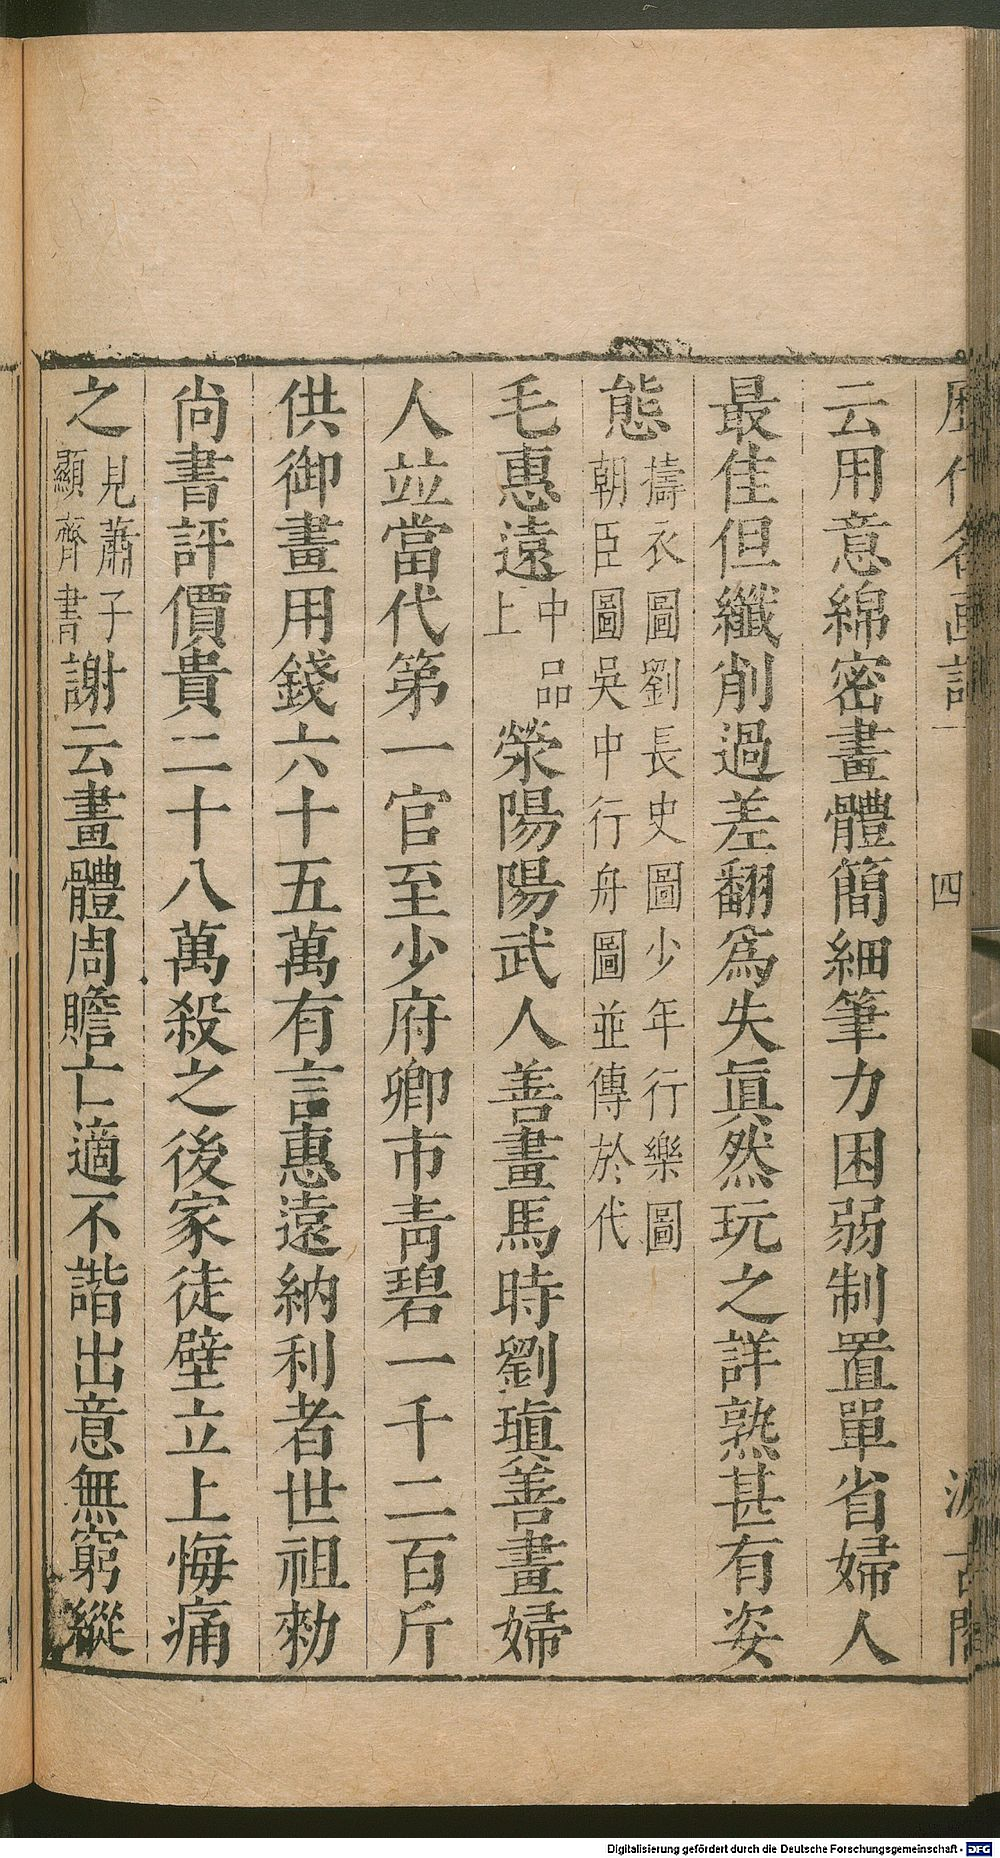 歷代名画記
四
汲古閣
云用意綿密畫體簡細筆力困弱制置單省婦人
最佳但纖削過差翻爲失眞然玩之詳熟甚有姿
態擣衣圖劉長史圖少年行樂圖
朝臣圖吳中行舟圖並傳於代
毛惠遠中品
上
滎陽陽武人善畫馬時劉瑱善畫婦
人並當代第一官至少府卿市靑碧一千二百斤
供御畫用錢六十五萬有言惠遠納利者世祖勑
尚書評價貴二十八萬殺之後家徒壁立上悔痛
之見蕭子
顯齊書
謝云畫體周贍亡適不諧出意無窮縱
Digitalisierung gefördert durch die Deutsche Forschungsgemeinschaft - DFG